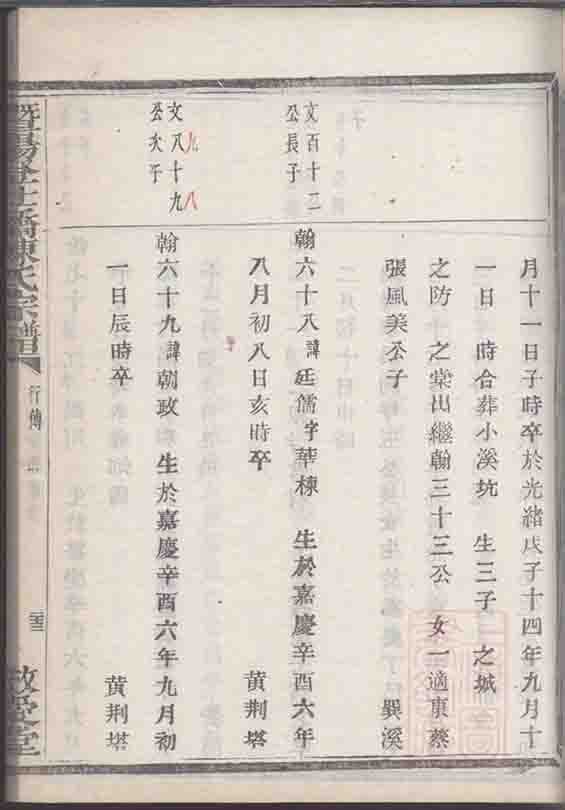 月十一日子時卒於光緒戊子十四年九月十
一日 時合葬小溪坑 生三子 之城
之防 之棠出繼翰三十三公 女一適東蔡
張風美公子 巽溪
文百十二
公長子
翰六十八諱廷儒字華棟 生於嘉慶辛酉六年
八月初八日亥時卒 黄荆塔
文八十九
九八
公次子
翰六十九諱朝政 生於嘉慶辛酉六年九月初
一日辰時卒 黄荆塔
橋陳氏宗譜
行傳
敬愛堂